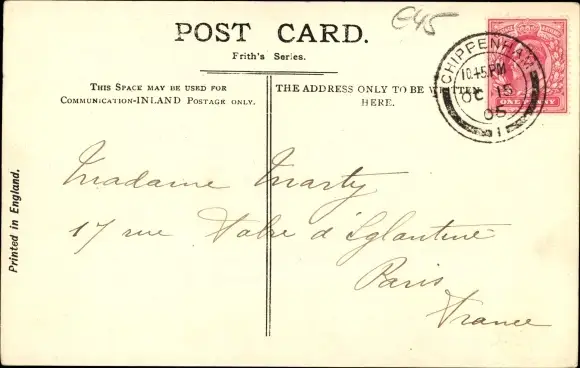 €45
POST CARD.
Frith's Series.
THIS SPACE MAY BE USED FOR
COMMUNICATION-INLAND POSTAGE ONLY.
THE ADDRESS ONLY TO BE WRITTEN
HERE.
CHIPPENHAM
10.45PM
OC 15
05
1
ONE PENNY
Printed in England.
Madame Marty
17 rue Fabre d'Eglantine
Paris
France